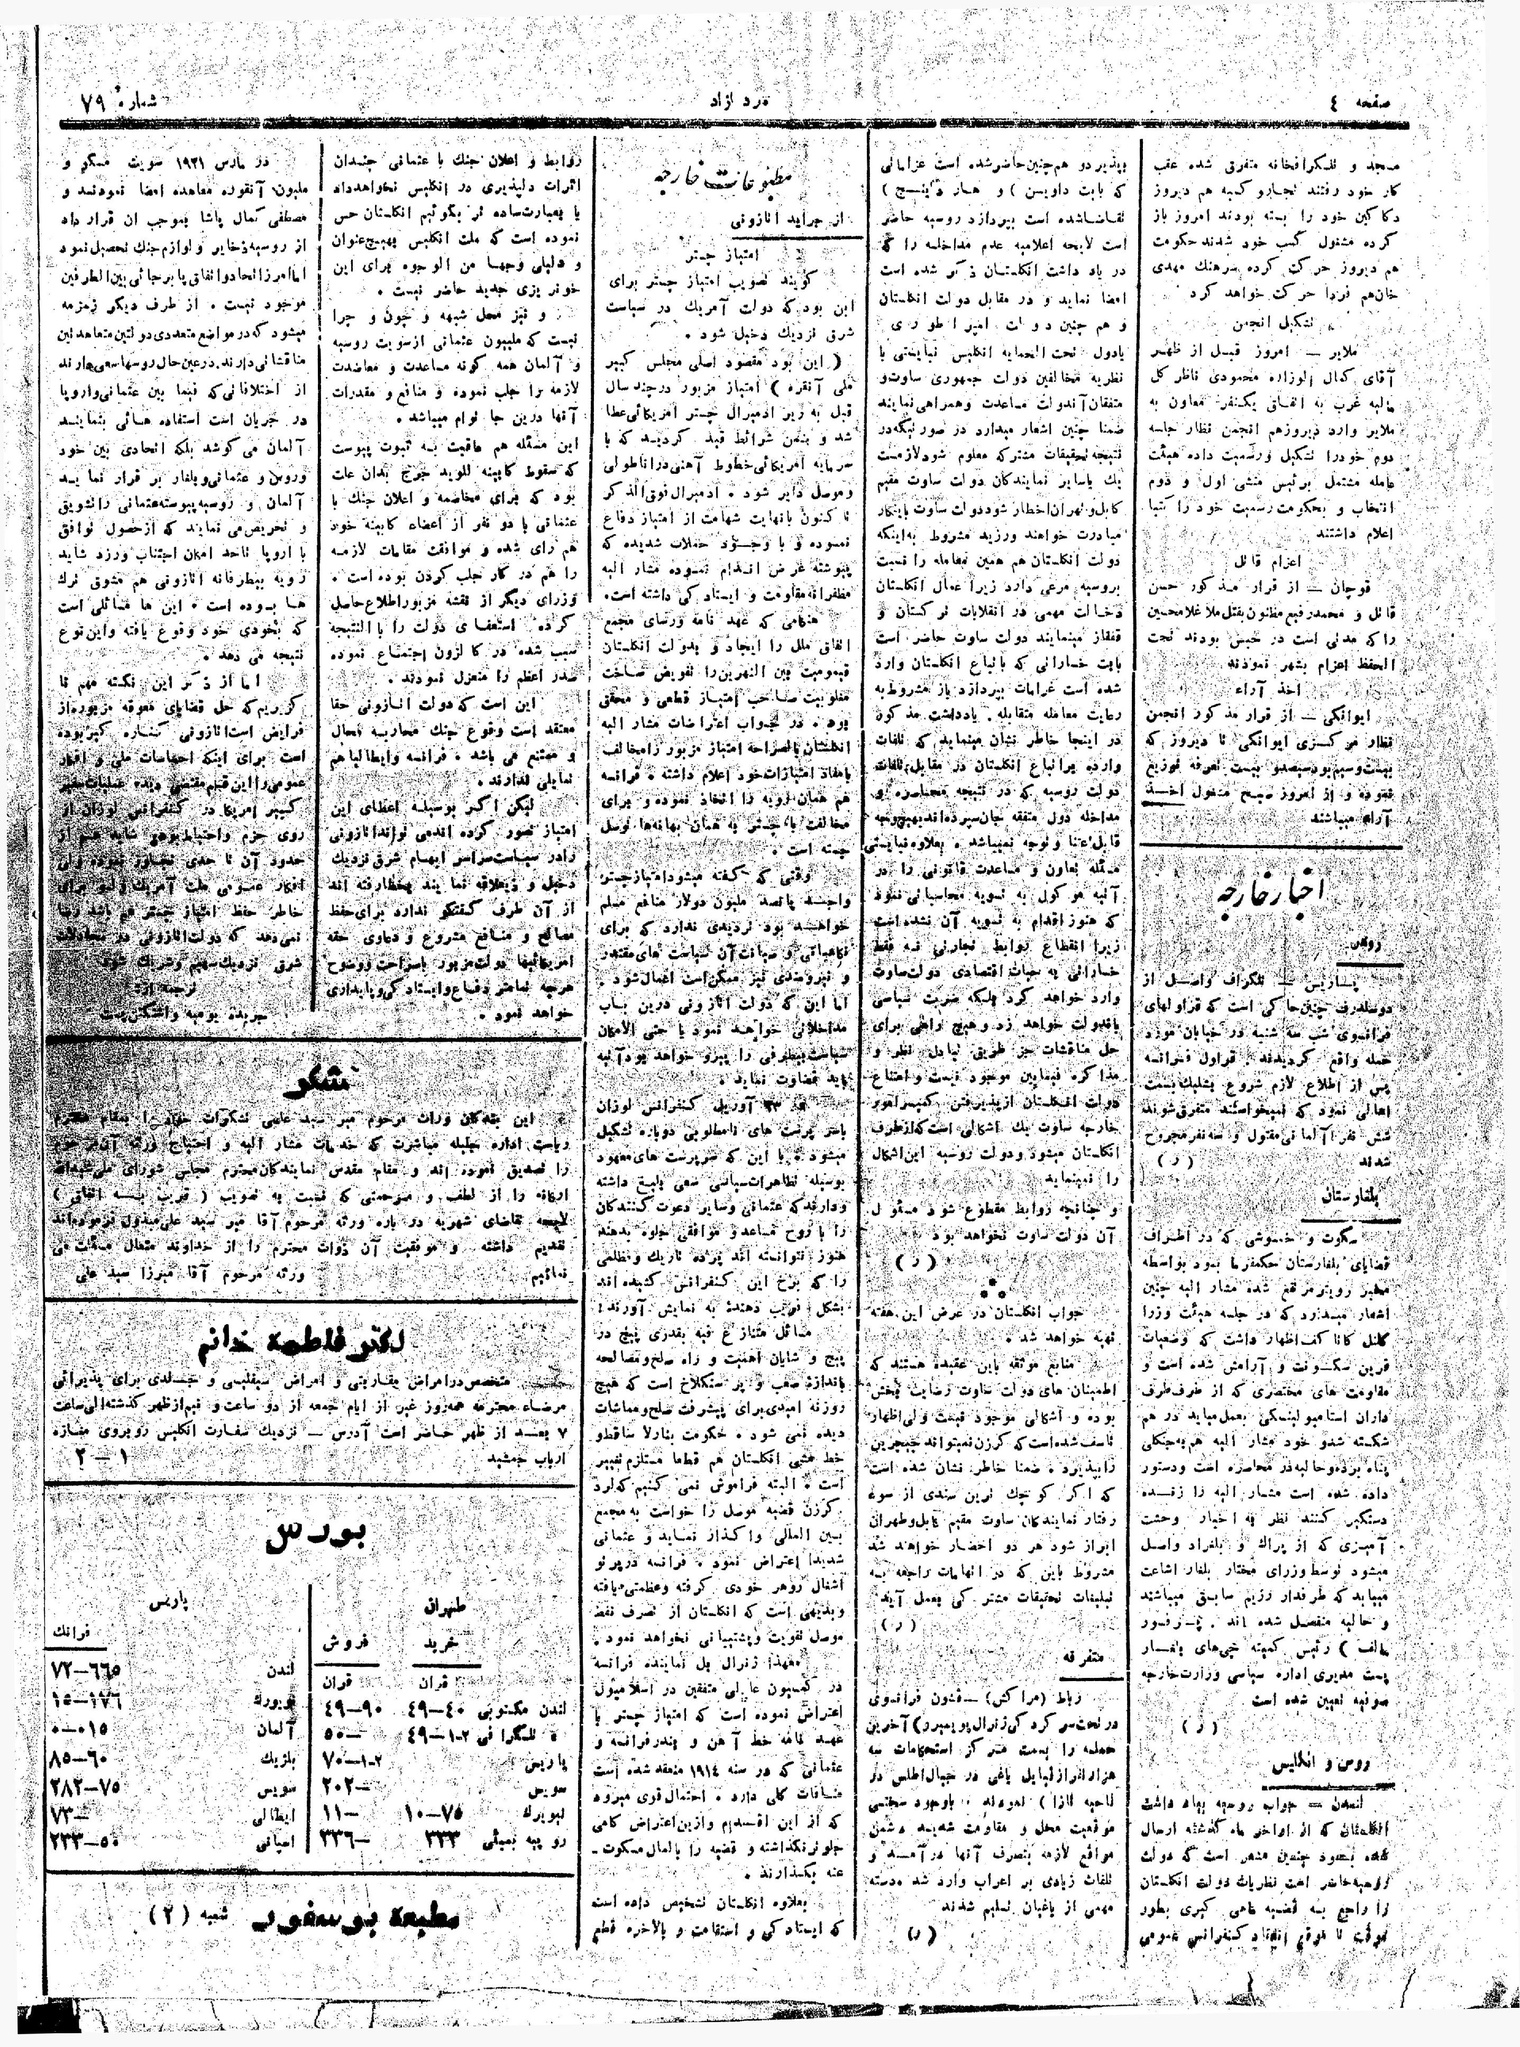 صفحه ٤
مرد آزاد
شماره ٧٩
مسجد و تلگرافخانه متفرق شده عقب
کار خود رفتند تجار و کسبه هم دیروز
دکاکین خود را بسته بودند امروز باز
کرده مشغول کسب خود شدند حکومت
هم دیروز حرکت کرده سرهنك مهدی
خان هم فردا حرکت خواهد کرد
تشکیل انجمن
ملایر — امروز قبل از ظهر
آقای کمال الوزاره محمودی ناظر کل
مالیه غرب به اتفاق یکنفر معاون به
ملایر وارد دیروز هم انجمن نظار جلسه
دوم خود را تشکیل و رسمیت داده هیئت
عامله مشتمل برئیس منشی اول و دوم
انتخاب و بحکومت رسمیت خود را کتبا
اعلام داشتند
اعزام قاتل
قوچان — از قرار مذکور حسن
قاتل و محمد رفیع مظنون بقتل ملا غلامحسین
را که مدتی است در حبس بودند تحت
الحفظ اعزام بشهر نمودند
اخذ آراء
ایوانکی — از قرار مذکور انجمن
نظار مرکزی ایوانکی تا دیروز که
نموده و از امروز صبح مشغول اخذ
آراء میباشند
اخبار خارجه
روس
پاریس — تلگراف واصل از
دوسلدرف چنین حاکی است که قراولهای
فرانسوی شب سه شنبه در خیابان مورد
حمله واقع گردیدند. قراول فرانسه
پس از اطلاع لازم شروع بشلیك بسمت
اهالی نمود که نمیخواستند متفرق شوند
شش نفر آلمانی مقتول و سه نفر مجروح
شدند (ر)
بلغارستان
سکوت و خموشی که در اطراف
قضایای بلغارستان حکمفرما بود بواسطه
مخبر رویتر مرتفع شده مشار الیه چنین
اشعار میدارد که در جلسه هیئت وزرا
قرین سکونت و آرامش شده است و
مقاومت های مختصری که از طرف طرف
داران استامبولینسکی بعمل میاید در هم
شکسته شد و خود مشار الیه هم به جنگلی
پناه برده و حالیه در محاصره است و دستور
داده شده است مشار الیه را زنده
دستگیر کنند نظر به اخبار وحشت
آمیزی که از پراك و بلگراد واصل
میشود توسط وزرای مختار بلغار اشاعت
میباید که طرفدار رژیم سابق میباشند
و حالیه منفصل شده اند. پرفسور
پست مدیری اداره سیاسی وزارت خارجه
صوفیه تعیین شده است
(ر)
روس و انگلیس
لندن — جواب روسیه بیاد داشت
انگلستان که از اواخر ماه گذشته ارسال
شده بحدود چنین مشعر است که دولت
روسیه حاضر است نظریات دولت انگلستان
را راجع به قضیه ماهی گیری بطور
موقت تا موقع انعقاد کنفرانس عمومی
بپذیرد و هم چنین حاضر شده است غراماتی
که بابت داویسن) و هاردینج)
تقاضا شده است بپردازد روسیه حاضر
است لایحه اعلامیه عدم مداخله را که
در یاد داشت انگلستان ذکر شده است
امضا نماید و در مقابل دولت انگلستان
و هم چنین دولت امپراطوری
یا دول تحت الحمایه انگلیس نبایستی با
نظریه مخالفین دولت جمهوری ساوت و
متفقان آندولت مساعدت و همراهی نمایند
ضمنا چنین اشعار میدارد در صورتیکه در
نتیجه تحقیقات مشترکه معلوم شود لازم است
یك یا سایر نمایندگان دولت ساوت مقیم
کابل و تهران اخطار شود دولت ساوت باینکار
مبادرت خواهند ورزید مشروط به اینکه
دولت انگلستان هم همین معامله را نسبت
بروسیه مرعی دارد زیرا عمال انگلستان
دخالت مهمی در انقلابات ترکستان و
قفقاز مینمایند دولت ساوت حاضر است
بابت خساراتی که باتباع انگلستان وارد
شده است غرامات بپردازد باز مشروط به
رعایت معامله متقابله. یادداشت مذکور
در اینجا خاطر نشان مینماید که تلفات
وارده بر اتباع انگلستان در مقابل تلفات
دولت روسیه که در نتیجه محاصره و
مداخله دول متفقه جان سپرده اند بهیچوجه
قابل اعتنا و توجه نمیباشد. بعلاوه نبایستی
مسئله تعاون و مساعدت قانونی را در
آتیه موکول به تسویه محاسباتی نمود
که هنوز اقدام به تسویه آن نشده است
زیرا انقطاع روابط تجارتی نه فقط
خساراتی به حیات اقتصادی دولت ساوت
وارد خواهد کرد بلکه ضربت سیاسی
باندولت خواهد زد و هیچ راهی برای
حل مناقشات جز طریق تبادل نظر و
مذاکره فیمابین موجود نیست و امتناع
دولت انگلستان از پذیرفتن کمیسر امور
خارجه ساوت یك اشکالی است که از طرف
انگلستان میشود و دولت روسیه این اشکال
را نمینماید
و چنانچه روابط مقطوع شود مسئول
آن دولت ساوت نخواهد بود
(ر)
جواب انگلستان در عرض این هفته
تهیه خواهد شد.
منابع موثقه باین عقیده هستند که
اطمینان های دولت ساوت رضایت بخش
بوده و اشکالی موجود نیست ولی اظهار
تاسف شده است که کرزن نمیتواند چیچرین
را بپذیرد. ضمنا خاطر نشان شده است
که اگر کوچك ترین سندی از سوء
رفتار نمایندگان ساوت مقیم کابل و طهران
ابراز شود هر دو احضار خواهند شد
مشروط باین که در اتهامات راجعه به
تبلیغات تحقیقات مشترکی بعمل آید
(ر)
متفرقه
رباط (مراکش) — قشون فرانسوی
در تحت سرکردگی ژنرال پویمیرو) آخرین
حمله را بسمت مرکز استحکامات سه
هزار نفر از قبایل یاغی در جبال اطلس در
ناحیه تازا) نمودند. باوجود سختی
موقعیت محل و مقاومت شدید دشمن
مواقع لازمه بتصرف آنها در آمد و
تلفات زیادی بر اعراب وارد شد دسته
مهمی از یاغیان تسلیم شدند
(ر)
مطبوعات خارجه
از جراید اتازونی
امتیاز چستر
گویند تصویب امتیاز چستر برای
این بود که دولت آمریك در سیاست
شرق نزدیك دخیل شود.
(این بود مقصود اصلی مجلس کبیر
ملی آنقره) امتیاز مزبور در چند سال
قبل به زیر ادمیرال چستر امریکائی عطا
شد و بعض شرائط قید گردید که با
سرمایه امریکائی خطوط آهنی در اناطولی
و موصل دایر شود. ادمیرال فوق الذکر
تاکنون با نهایت شهامت از امتیاز دفاع
نموده و با وجود حملات شدیده که
پیوسته غرض انهدام نموده مشار الیه
مظفرانه مقاومت و ایستادگی داشته است.
هنگامی که عهد نامه ورسای مجمع
اتفاق ملل را ایجاد و بدولت انگلستان
قیمومیت بین النهرین را تفویض ساخت
مغلوبیت صاحب امتیاز قطعی و محقق
بود. در جواب اعتراضات مشار الیه
انگلستان بالصراحه امتیاز مزبور را مخالف
با مفاد امتیازات خود اعلام داشته. فرانسه
هم همان رویه را اتخاذ نموده و برای
مخالفت با چستر به همان بهانه ها توسل
جسته است.
وقتی که گفته میشود امتیاز چستر
واجد پانصد ملیون دولار منافع مسلم
خواهد بود تردیدی ندارد که برای
نگاهبانی و صیانت آن سیاست های مقتدر
و نیرومندی نیز ممکن است اعمال شود.
اما این که دولت اتازونی درین باب
مداخلاتی خواهند نمود یا حتی الامکان
سیاست بیطرفی را پیرو خواهد بود آتیه
باید قضاوت نماید.
در ٢٣ آوریل کنفرانس لوزان
باسر پرست های نامطلوبی دوباره تشکیل
میشود. با این که سرپرست های معهود
بوسیله تظاهرات سیاسی سعی بلیغ داشته
و دارند که عثمانی و سایر دعوت کنندگان
را با روح مساعد و موافقی جلوه بدهند
هنوز نتوانسته اند پرده تاریك و مظلمی
را که برخ این کنفرانس کشیده اند
بشکل فریب دهنده به نمایش آورند!
مسائل متنازع فیه بقدری پیچ در
پیچ و شایان اهمیت و راه صلح و مصالحه
باندازه صعب و پر سنگلاخ است که هیچ
روزنه امیدی برای پیشرفت صلح و مماشات
دیده نمی شود. حکومت بنارلا ساقط و
خط مشی انگلستان هم قطعا مستلزم تغییر
است. البته فراموش نمی کنیم که لرد
کرزن قضیه موصل را خواست به مجمع
بین المللی واگذار نماید و عثمانی
شدیدا اعتراض نمود. فرانسه در پرتو
اشغال روهر خودی گرفته و عظمتی یافته
و بدیهی است که انگلستان از تصرف نفط
موصل تقویت و پشتیبانی نخواهد نمود.
معهذا ژنرال پل نماینده فرانسه
در کمسیون عالی متفقین در اسلامبول
اعتراض نموده است که امتیاز چستر با
عهد نامه خط آهن و بندر فرانسه و
عثمانی که در سنه ١٩١٤ منعقد شده است
منافات کلی دارد. احتمال قوی میرود
که از این اقدام و ازین اعتراض گامی
جلوتر نگذاشته و قضیه را بالمال مسکوت
عنه بگذارند.
بعلاوه انگلستان تشخیص داده است
که ایستادگی و استقامت و بالاخره قطع
روابط و اعلان جنك با عثمانی چندان
اثرات دلپذیری در انگلیس نخواهد داد
یا بعبارت ساده تر بگوئیم انگلستان حس
نموده است که ملت انگلیس بهیچ عنوان
و دلیلی وجها من الوجوه برای این
خونریزی جدید حاضر نیست.
و نیز محل شبهه و چون و چرا
نیست که ملیون عثمانی از سویت روسیه
و آلمان همه گونه مساعدت و معاضدت
لازمه را جلب نموده و منافع و مقدرات
آنها درین جا توام میباشد.
این مسئله هم عاقبت به ثبوت پیوست
که سقوط کابینه للوید جرج بدان علت
بود که برای مخاصمه و اعلان جنك با
عثمانی با دو نفر از اعضاء کابینه خود
هم رای شده و موافقت مقامات لازمه
را هم در کار جلب کردن بوده است.
وزرای دیگر از نقشه مزبور اطلاع حاصل
کرده استعفای دولت را بالنتیجه
سبب شده در کارلتون اجتماع نموده
صدر اعظم را منعزل نمودند.
این است که دولت اتازونی حقا
معتقد است وقوع جنك محاربه محال
و ممتنع می باشد. فرانسه و ایطالیا هم
تمایلی ندارند.
لیکن اگر بوسیله اعطای این
امتیاز تصور کرده اند می توانند اتازونی
را در سیاست سراسر ابهام شرق نزدیك
دخیل و ذیعلاقه نمایند بخطا رفته اند
از آن طرف گفتگو ندارد برای حفظ
مصالح و منافع مشروع و دعاوی حقه
امریکائیها دولت مزبور باصراحت و وضوح
هر چه تمامتر دفاع و ایستادگی و پایداری
خواهد نمود.
در مارس ١٩٢١ سویت مسکو و
ملیون آنقوره معاهده امضا نمودند و
مصطفی کمال پاشا بموجب آن قرار داد
از روسیه ذخایر و لوازم جنك تحصیل نمود
اما امروز اتحاد و اتفاق پا برجائی بین الطرفین
موجود نیست. از طرف دیگر زمزمه
میشود که در مواضع متعددی دولتین متعاهدتین
مناقشاتی دارند. در عین حال روسها سعی دارند
از اختلافاتی که فیما بین عثمانی و اروپا
در جریان است استفاده هائی بنمایند
آلمان می کوشد بلکه اتحادی بین خود
و روس و عثمانی و بلغار بر قرار نماید
آلمان و روسیه پیوسته عثمانی را تشویق
و تحریص می نمایند که از حصول توافق
با اروپا تا حد امکان اجتناب ورزد شاید
رویه بیطرفانه اتازونی هم مشوق ترك
ها بوده است. این ها مسائلی است
که بخودی خود وقوع یافته و این نوع
نتیجه می دهد.
اما از ذکر این نکته مهم نا
گزیریم که حل قضایای معوقه مزبوره از
فرایض است اتازونی کناره گیر بوده
است برای اینکه احساسات ملی و افکار
عمومی را این قسم مقتضی دیده عملیات سفیر
کبیر امریکا در کنفرانس لوزان از
روی حزم و احتیاط بوده شاید هم از
حدود آن تا حدی تجاوز نموده ولی
افکار عمومی ملت آمریك ولو برای
خاطر حفظ امتیاز چستر هم باشد رضا
نمی دهد که دولت اتازونی در معاملات
شرق نزدیك سهیم و شریك شود.
ترجمه از:
جریده یومیه واشنگتن پست
تشکر
این بندگان وراث مرحوم میر سید علی تشکرات خود را بمقام محترم
ریاست اداره جلیله مباشرت که خدمات مشار الیه و احتیاج ورثه آن مرحوم
را تصدیق نموده اند و مقام مقدس نمایندگان محترم مجلس شورای ملی شیدالله
ارکانه را از لطف و مرحمتی که نسبت به تصویب (قریب به اتفاق)
لایحه تقاضای شهریه در باره ورثه مرحوم آقا میر سید علی مبذول فرموده اند
تقدیم داشته و موفقیت آن ذوات محترم را از خداوند متعال مسئلت می
نمائیم ورثه مرحوم آقا میرزا سید علی
دکتر فاطمه خانم
متخصص در امراض مقاربتی و امراض سیفلیسی و جلدی برای پذیرائی
مرضاء محترمه همه روز غیر از ایام جمعه از دو ساعت و نیم از ظهر گذشته الی ساعت
٧ بعد از ظهر حاضر است آدرس — نزدیك سفارت انگلیس روبروی مغازه
ارباب جمشید ١—٢
بورس
طهران
خرید فروش
قران قران
لندن مکتوبی ٤٠—٤٩ ٩٠—٤٩
« تلگرافی ٢-١—٤٩ —٥٠
پاریس ٢-١—٧٠
سویس —٢٠٢
نیویورك ٧٥—١٠ —١١
روپیه بمبئی ٣٣٣ —٣٣٦
پاریس
فرانك
لندن ٦٦٥—٧٢
نیویورك ١٧٦—١٥
آلمان ٠١٥—٠
بلژیك ٦٠—٨٥
سویس ٧٥—٢٨٢
ایطالی —٧٣
اسپانی ٥٠—٢٣٣
مطبعه بوسفور شعبه (٢)